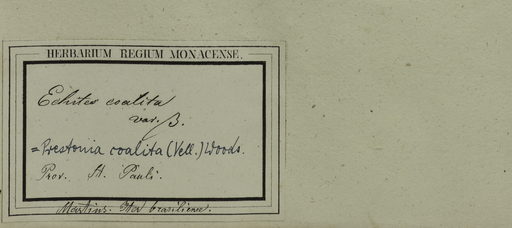 HERBARIUM REGIUM MONACENSE.
Echites coalita
var. β.
=Prestonia coalita (Vell.) Woods.
Prov. St. Pauli.
Martius. Iter brasiliense.